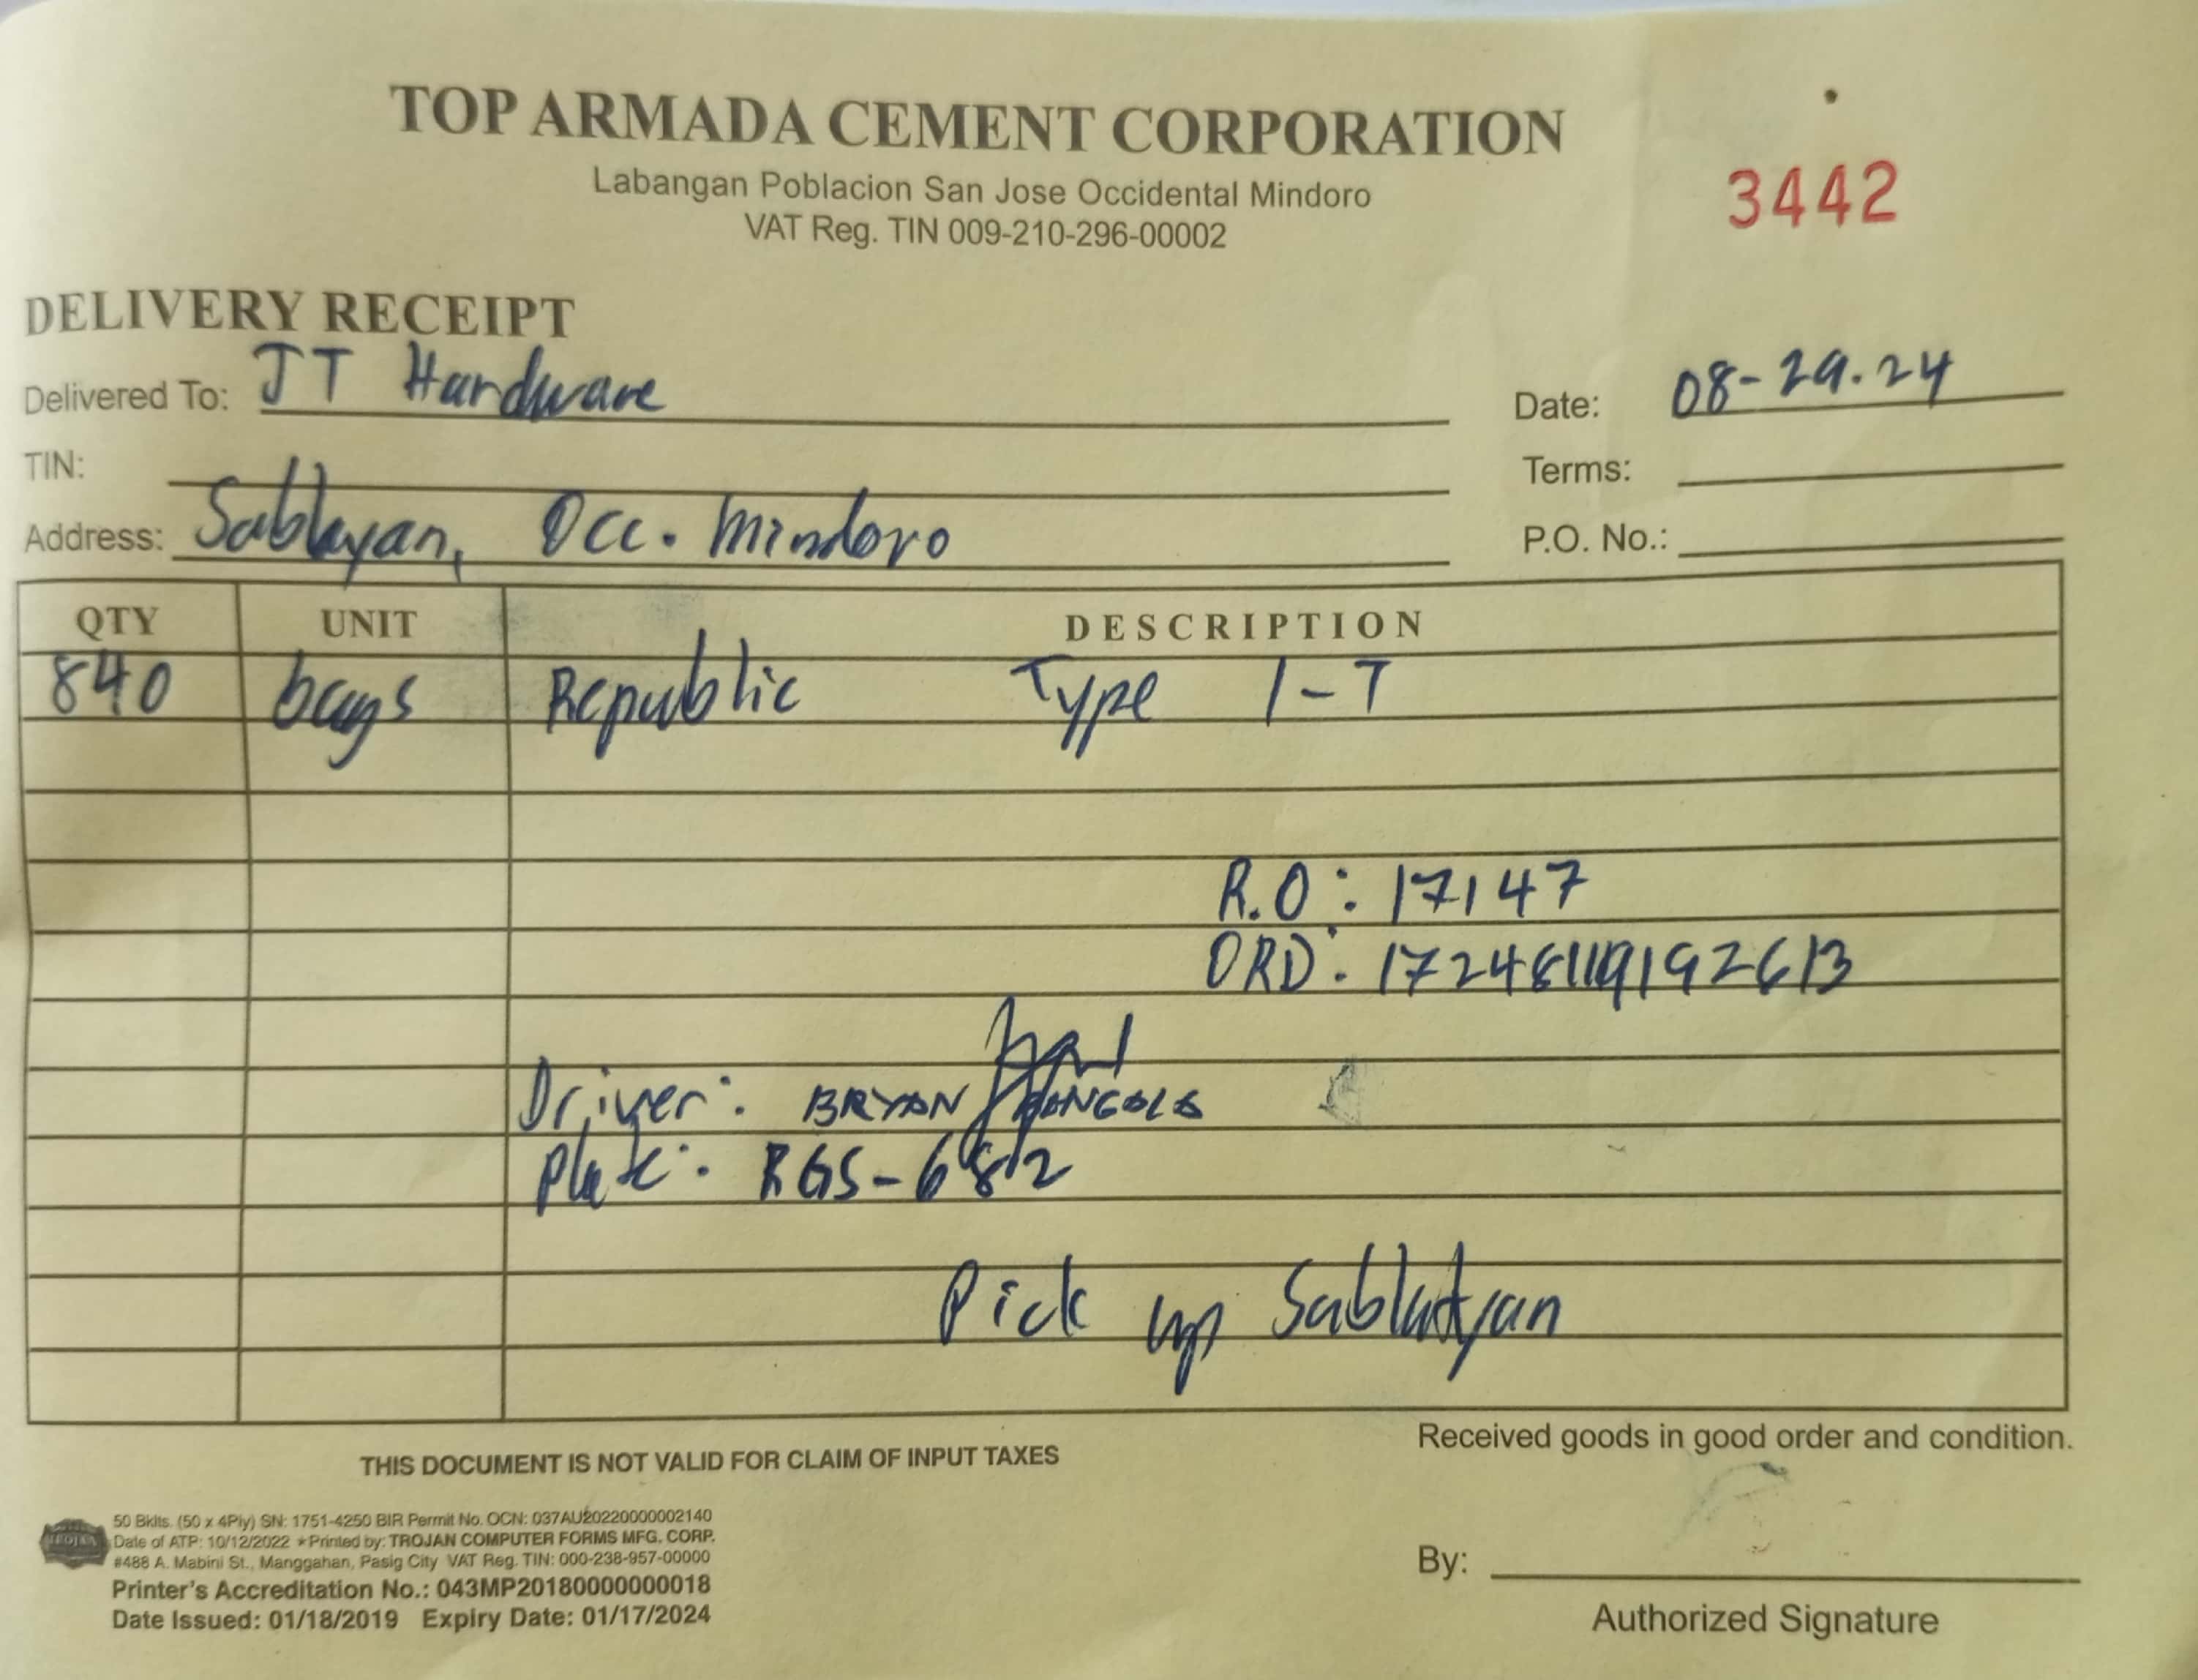 TOP ARMADA CEMENT CORPORATION
Labangan Poblacion San Jose Occidental Mindoro
VAT Reg. TIN 009-210-296-00002
3442
DELIVERY RECEIPT
Delivered To: JT Hardware
Date: 08-29.24
TIN:
Terms:
Address: Sablayan, Occ. Mindoro
P.O. No.:
QTY UNIT DESCRIPTION
840 bags Republic Type 1-T
R.O: 17147
ORD: 17248119192613
Driver: BRYAN
Plate: RGS-682
Pick up Sablayan
Received goods in good order and condition.
THIS DOCUMENT IS NOT VALID FOR CLAIM OF INPUT TAXES
TROJAN
50 Bklts. (50 x 4Ply) SN: 1751-4250 BIR Permit No. OCN: 037AU20220000002140
Date of ATP: 10/12/2022 ★ Printed by: TROJAN COMPUTER FORMS MFG. CORP.
#488 A. Mabini St., Manggahan, Pasig City VAT Reg. TIN: 000-238-957-00000
Printer's Accreditation No.: 043MP20180000000018
Date Issued: 01/18/2019 Expiry Date: 01/17/2024
By:
Authorized Signature